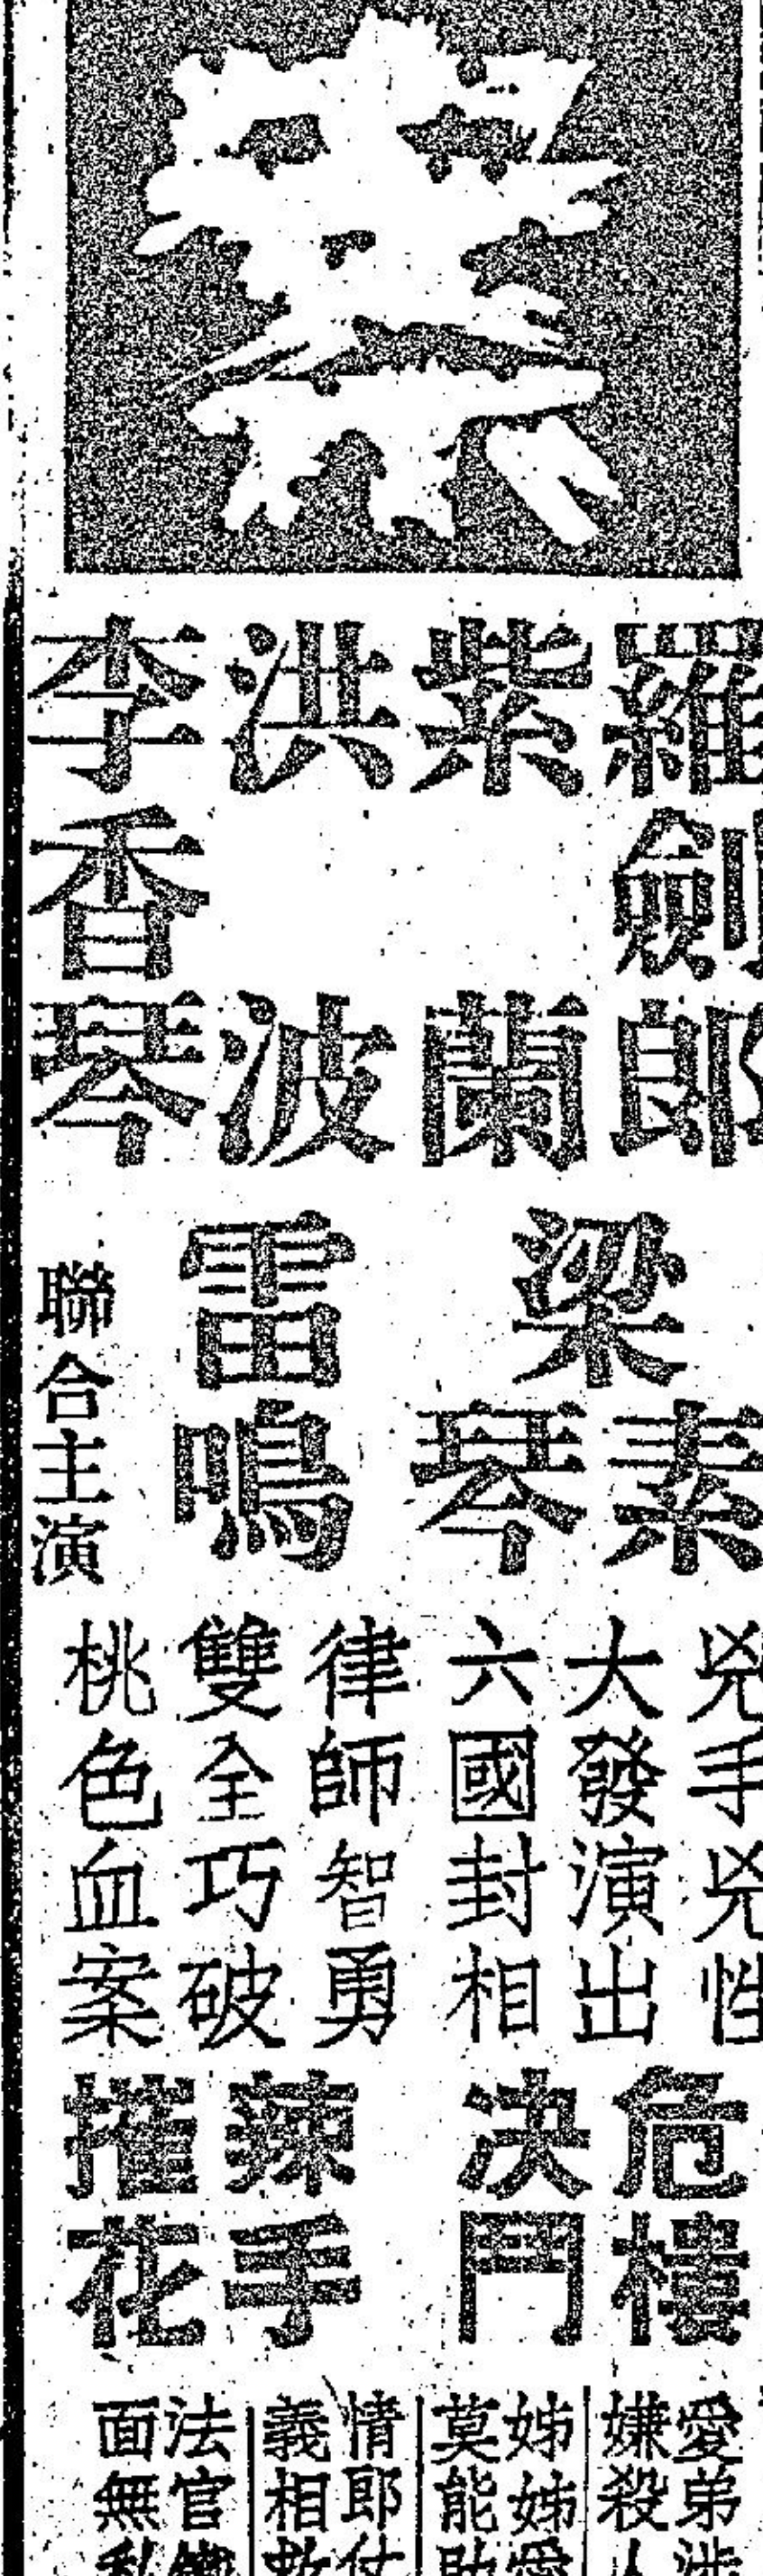 案
羅劍郎
紫蘭
洪波
李香琴
梁素琴
雷鳴
聯合主演
兇手兇性
大發演出
六國封相
律師智勇
雙全巧破
桃色血案
危樓
決鬥
辣手
摧花
愛弟涉
嫌殺人
姊姊愛
莫能助
情郎仗
義相救
法官鐵
面無私